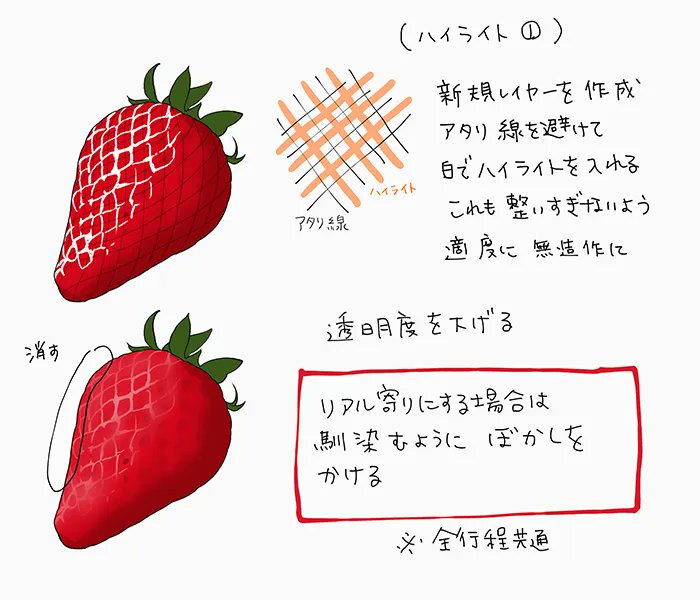 (ハイライト①)
新規レイヤーを作成
アタリ線を避けて
白でハイライトを入れる
これも整いすぎないよう
適度に無造作に
ハイライト
アタリ線
透明度を下げる
消す
リアル寄りにする場合は
馴染むようにぼかしを
かける
※全行程共通